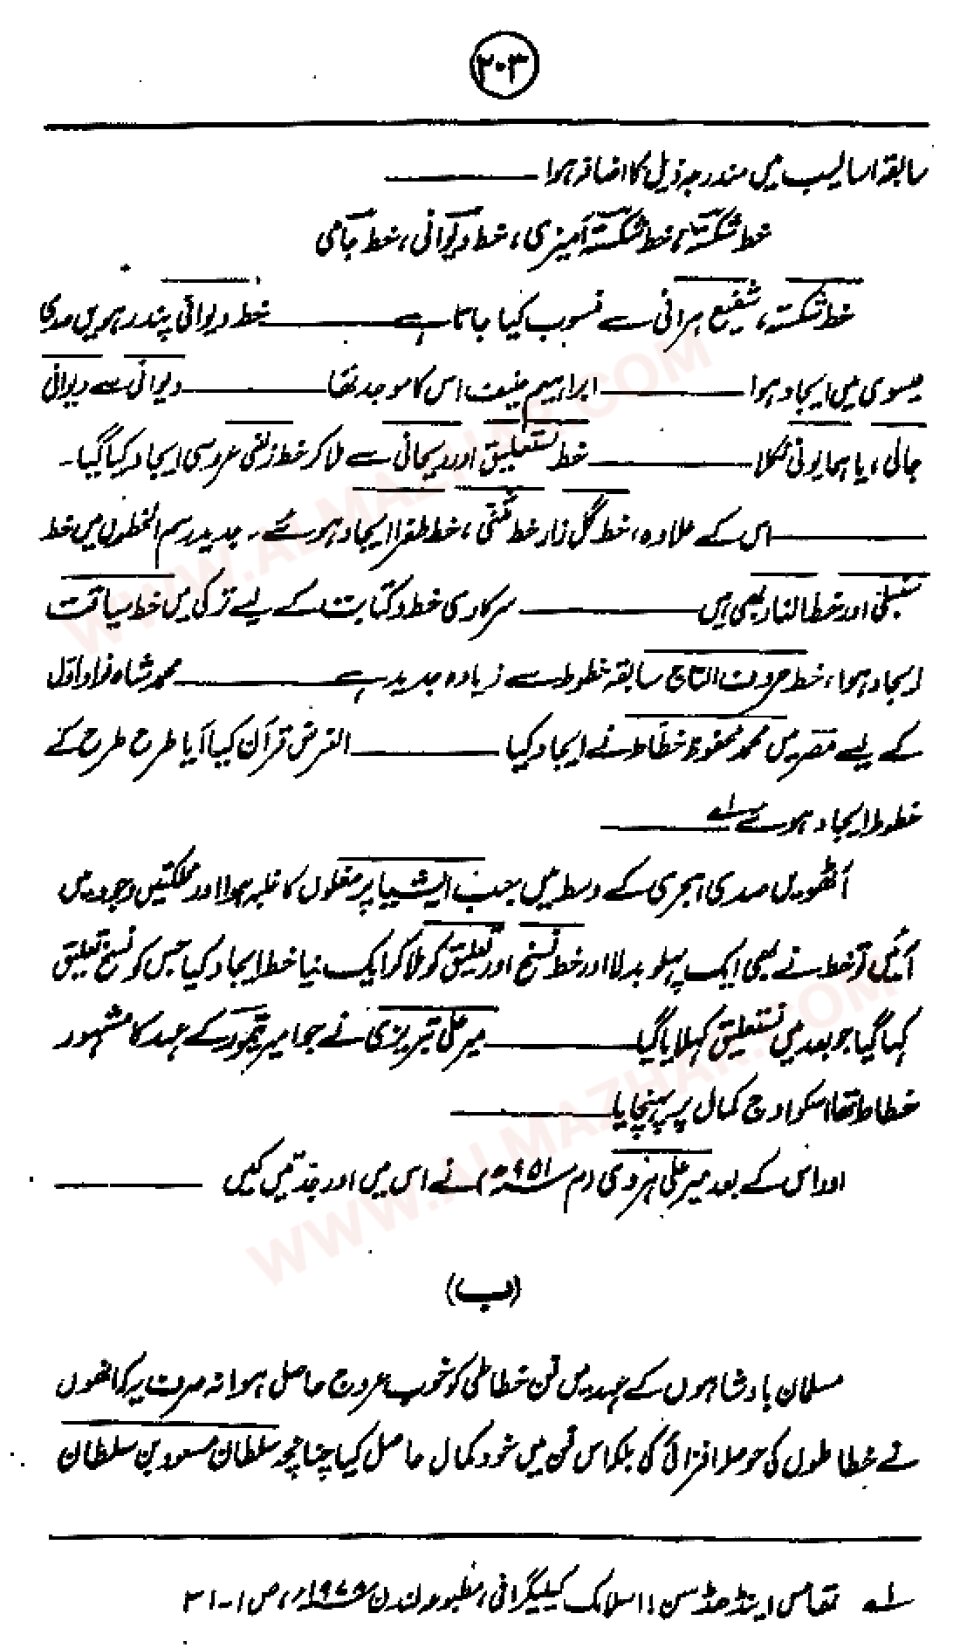 ۲۰۳
سابقہ اسالیب میں مندرجہ ذیل کا اضافہ ہوا ———
خط شکستہ، خط شکستہ آمیزی، خط دیوانی، خط جامی
خط شکستہ، شفیع ہراتی سے منسوب کیا جاتا ہے ——— خط دیوانی پندرہویں صدی
عیسوی میں ایجاد ہوا ——— ابراہیم منیف اس کا موجد تھا ——— دیوانی سے دیوانی
جالی، یا ہمایونی نکلا ——— خط نستعلیق اور ریحانی سے ملا کر خط زلفی عروسی ایجاد کیا گیا۔
——— اس کے علاوہ، خط گل زار خط مثنی، خط طغرا ایجاد ہوئے۔ جدید رسم الخطوں میں خط
سنبلی اور خط النار بھی ہیں ——— سرکاری خط و کتابت کے لیے ترکی میں خط سیاقت
ایجاد ہوا، خط حروف التاج سابقہ خطوط سے زیادہ جدید ہے ——— محمد شاہ فواد اول
کے لیے مصر میں محمد محفوظ خطاط نے ایجاد کیا ——— الغرض قرآن کیا آیا طرح طرح کے
خطوط ایجاد ہوئے لے ———
آٹھویں صدی ہجری کے وسط میں جب ایشیا پر مغلوں کا غلبہ ہوا اور مملکتیں وجود میں
آئیں تو خط نے بھی ایک پہلو بدلا اور خط نسخ اور تعلیق کو ملا کر ایک نیا خط ایجاد کیا جس کو نسخ تعلیق
کہا گیا جو بعد میں نستعلیق کہلایا گیا ——— میر علی تبریزی نے جو امیر تیمور کے عہد کا مشہور
خطاط تھا اسکو اوج کمال پر پہنچایا ———
اور اس کے بعد میر علی ہروی (م ۹۵۱ھ) نے اس میں اور جدتیں کیں ———
(ب)
مسلمان بادشاہوں کے عہد میں فن خطاطی کو خوب عروج حاصل ہوا نہ صرف یہ کہ انھوں
نے خطاطوں کی حوصلہ افزائی کی بلکہ اس فن میں خود کمال حاصل کیا چنانچہ سلطان مسعود بن سلطان
لے تھامس اینڈ ہڈسن: اسلامک کیلیگرافی، مطبوعہ لندن ۱۹۷۸ء، ص ۱-۳۱